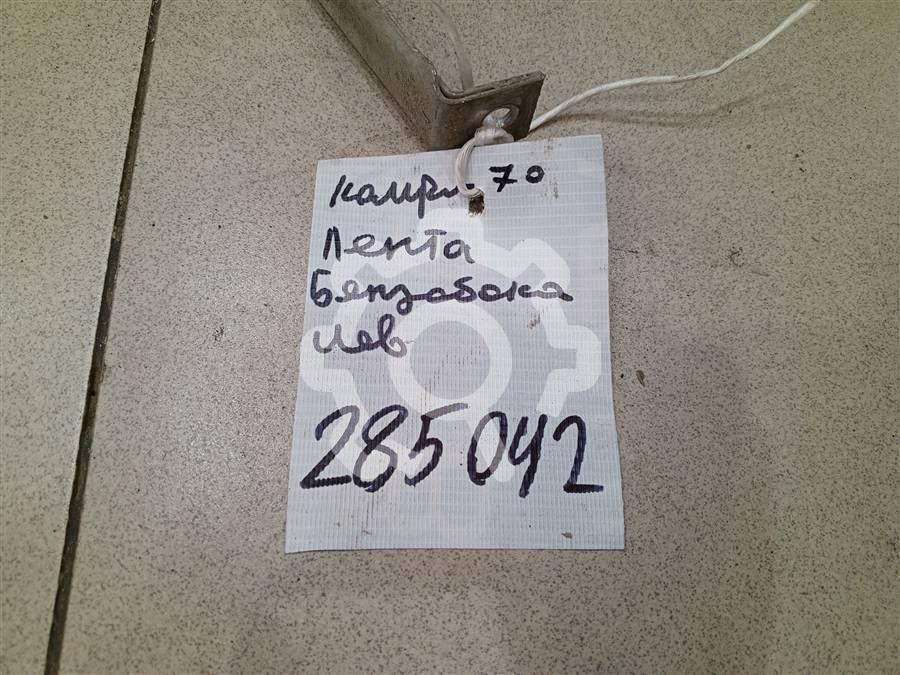 Камри 70
Лента
Бензобака
лев
285042